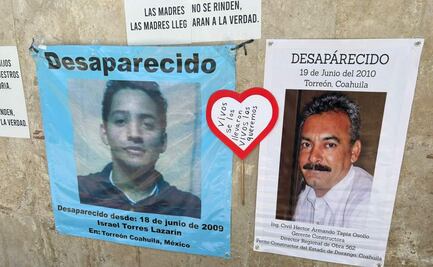 LAS MADRES NO SE RINDEN,
LAS MADRES LLEG ARAN A LA VERDAD.
NDEN,
LA VERDAD.
Desaparecido
Desaparecido desde: 18 de junio de 2009
Israel Torres Lazarín
En: Torreón Coahuila, México
VIVOS
se los
llevaron
VIVOS LOS
queremos
DESAPARECIDO
19 de Junio del 2010
Torreón, Coahuila
Ing. Civil Hector Armando Tapia Osollo
Gerente Constructora
Director Regional de Obra 562
Perito Constructor del Estado de Durango, Coahuila